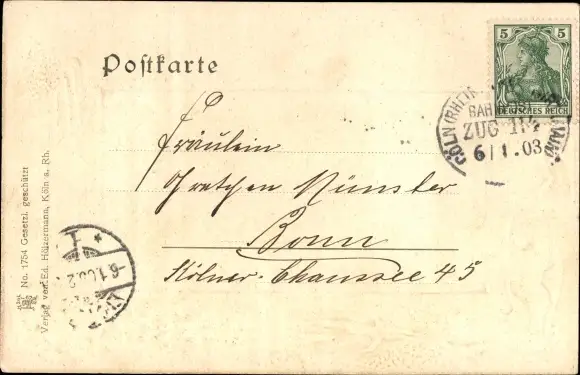 Postkarte
5 5
DEUTSCHES REICH
CÖLN (RHEIN
BAH
ZUG 114
6/1.03
Fräulein
Gretchen Münster
Bonn
Kölner-Chaussee 45
No. 1754 Gesetzl. geschützt
Verlag von Ed. Hölzermann, Köln a. Rh.
6.1.03.2